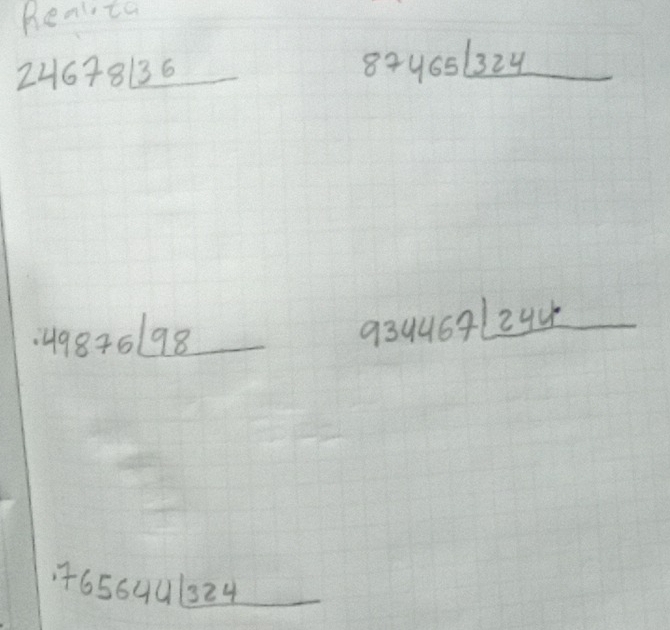 Realiza
24678 36
87465 324
.49876 98
934467 244
.765644 324